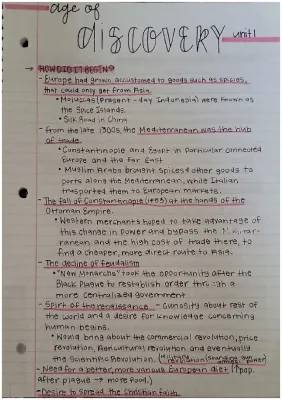 age of
DISCOVERY unit 1
→ HOW DID IT BEGIN?
- Europe had grown accustomed to goods such as spices,
that could only get from Asia.
• Moluccas (Present-day Indonesia) were known as
the Spice Islands.
• Silk Road in China
- from the late 1300s, the Mediterranean was the hub
of trade.
• Constantinople and Egypt in particular connected
Europe and the Far East
• Muslim Arabs brought spices & other goods to
ports along the Mediterranean, while Italian
transported them to European markets.
- The fall of Constantinople (1453) at the hands of the
Ottoman Empire.
• Western merchants hoped to take advantage of
this change in power and bypass the
rranean and the high cost of trade there, to
find a cheaper, more direct route to Asia.
- The decline of feudalism
• "New Monarchs" took the opportunity after the
Black Plague to restablish order through a
more centralized government
- Spirt of the renaissance - curiosity about rest of
the world and a desire for knowledge concerning
human begins.
• Would bring about the commercial revolution, price
revolution, Agricultural revolution and eventually
the Scientific Revolution. (Military
revolution (standing gun power)
- Need for a better, more various European diet (↑pop.
after plague → more food.)
- Desire to spread the Christian faith